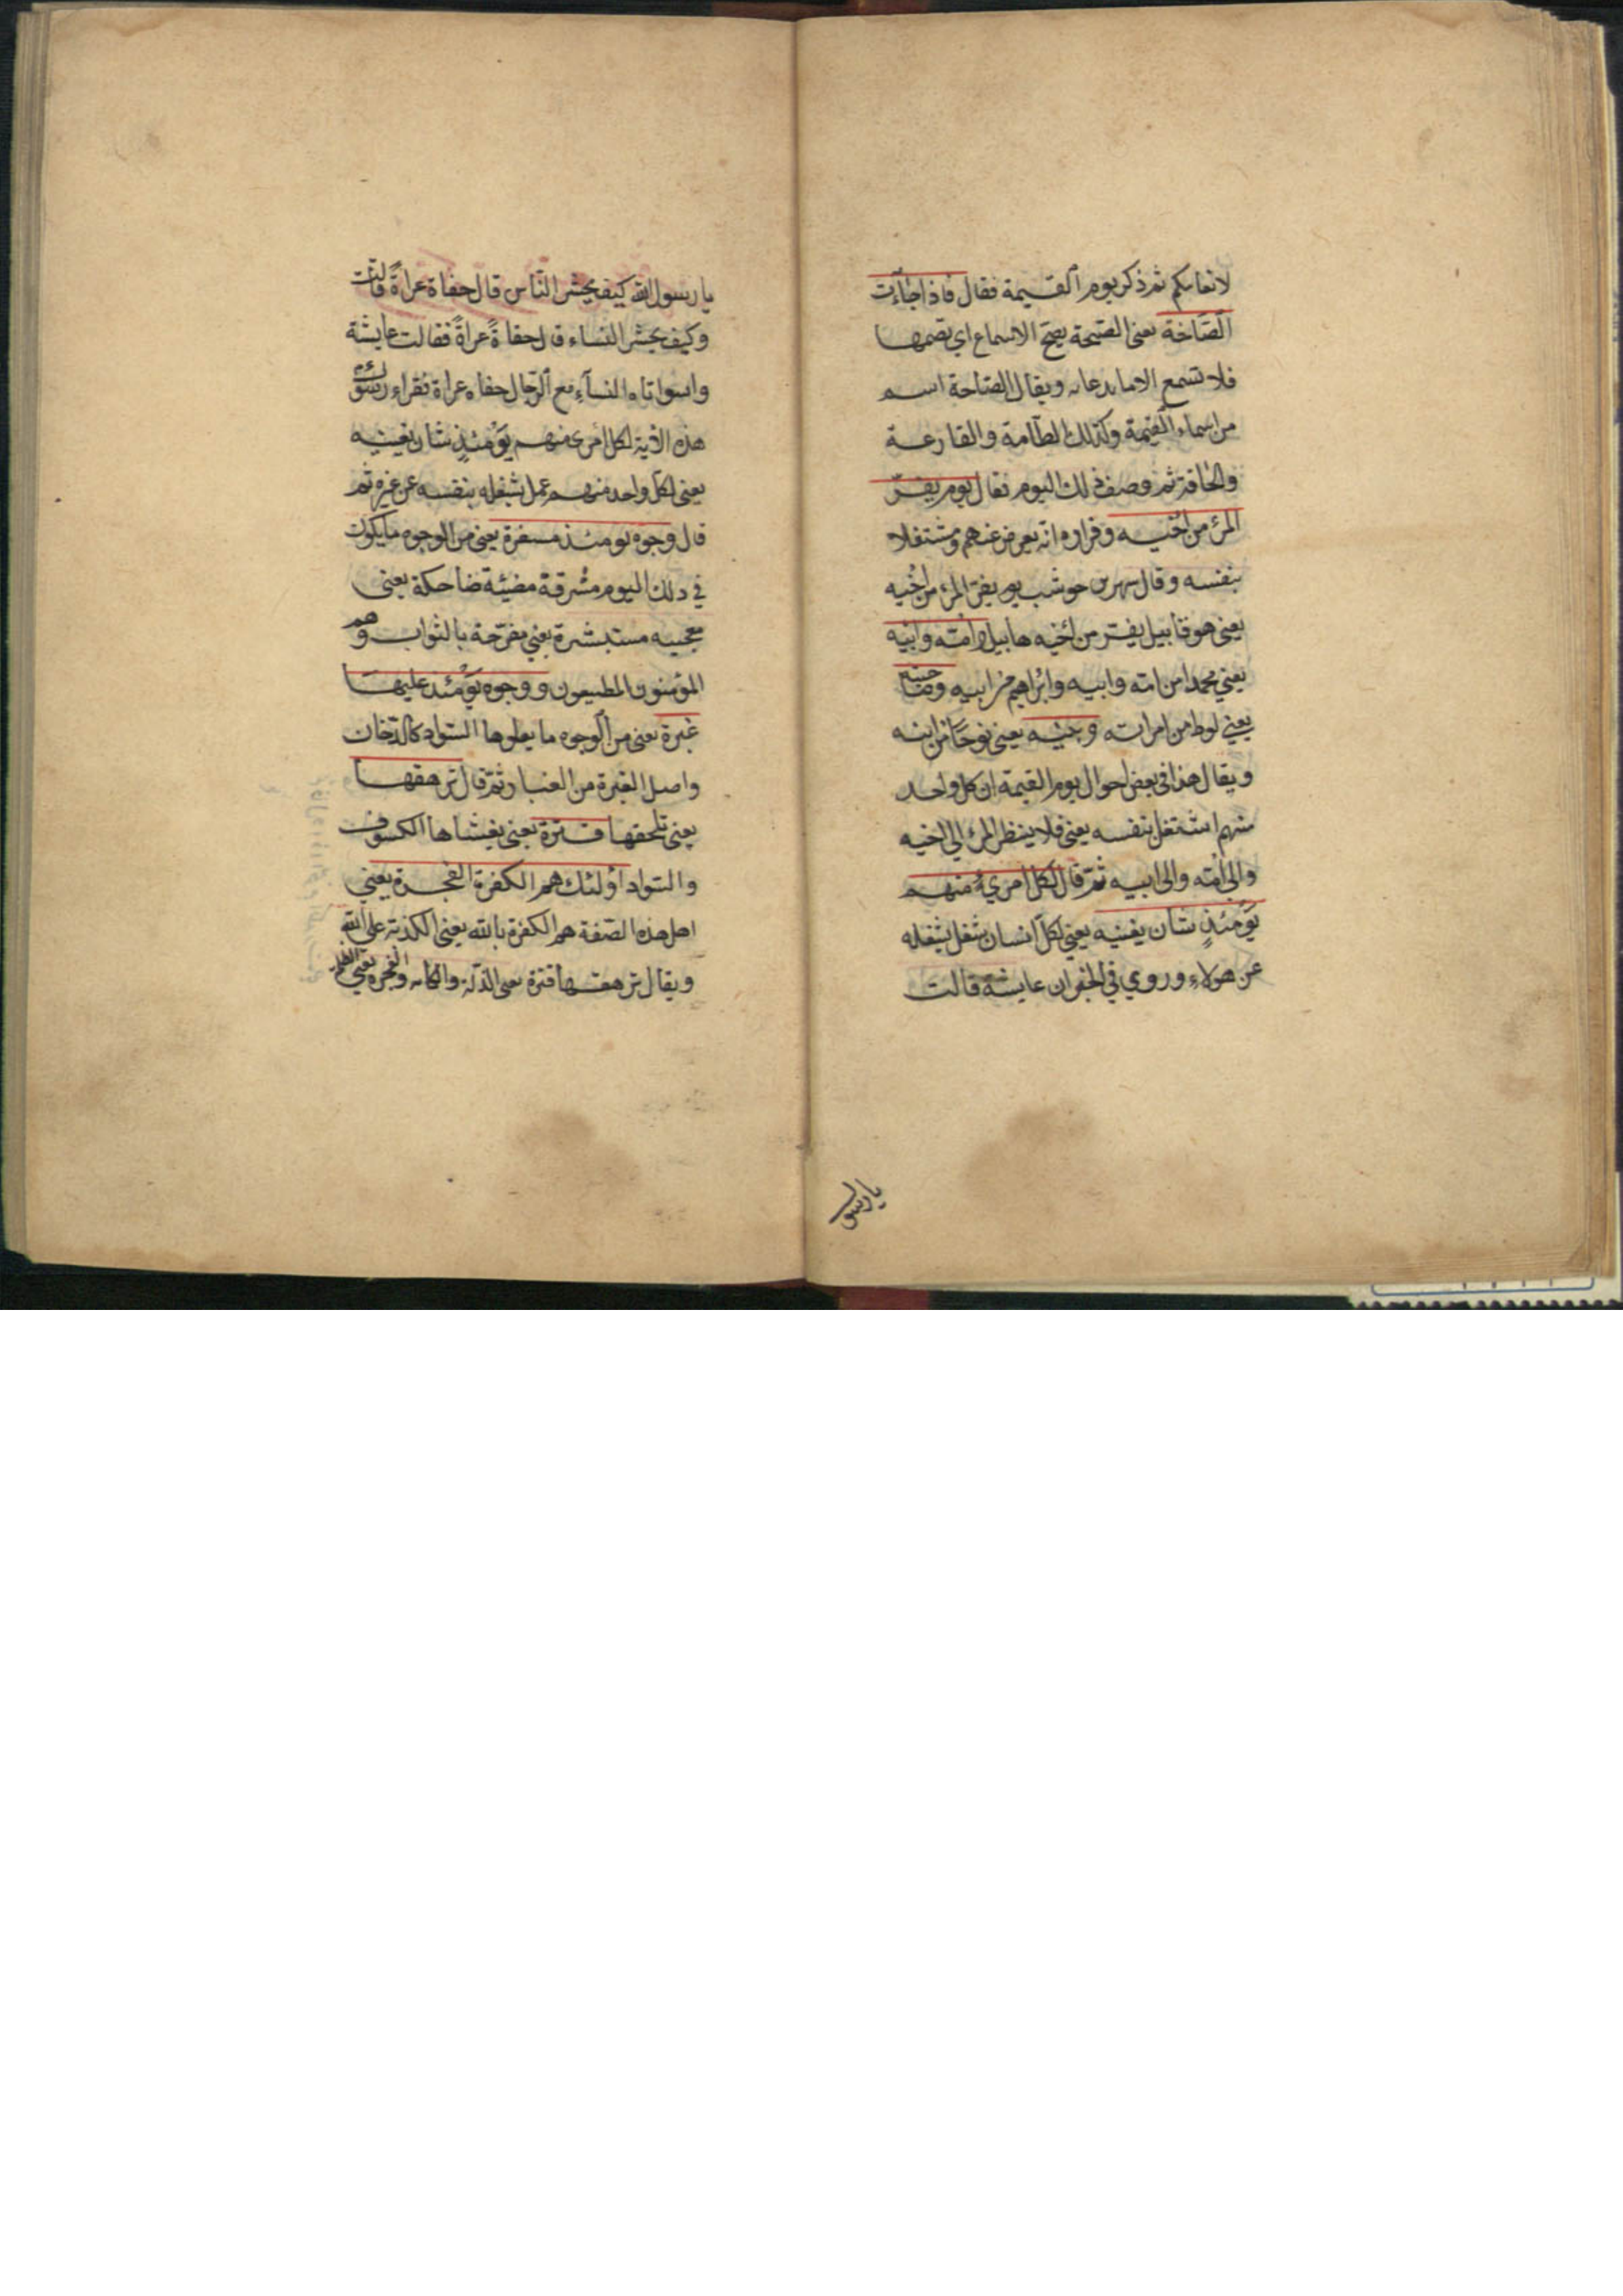 لانعامكم ثم ذكر يوم القيمة فقال فاذا جاءت
الصاخة يعنى الصيحة يصخ الاسماع اى تصمها
فلا تسمع الا ما يدعا به ويقال الصاخة اسم
من اسماء القيمة وكذلك الطامة والقارعة
والحاقة ثم وصف ذلك اليوم فقال يوم يفر
المرء من اخيه وفراره انه يعرض عنهم ومشتغلا
بنفسه وقال شهر بن حوشب يوم يفر المرء من اخيه
يعنى هو قابيل يفر من اخيه هابيل وامه وابيه
يعني محمدا من امه وابيه وابراهيم من ابيه وصاحبته
يعني لوط من امراته وبنيه يعنى نوحا من ابنه
ويقال هذا فى بعض احوال يوم القيمة ان كل واحد
منهم اشتغل بنفسه يعنى فلا ينظر المرء الى اخيه
والى امه والى ابيه ثم قال لكل امرئ منهم
يومئذ شان يغنيه يعني لكل انسان شغل يشغله
عن هولاء وروي في الخبر ان عايشة قالت
يا رسو
يا رسول الله كيف يحشر الناس قال حفاة عراة قالت
وكيف يحشر النساء قال حفاة عراة فقالت عايشة
واسواتاه النساء مع الرجال حفاه عراة فقراء رسول الله
هذه الاية لكل امرئ منهم يومئذ شان يغنيه
يعنى لكل واحد منهم عمل يشغله بنفسه عن غيره ثم
قال وجوه يومئذ مسفرة يعنى من الوجوه ما يكون
في ذلك اليوم مشرقة مضيئة ضاحكة يعنى
معجبه مستبشرة يعني مفرحة بالثواب وهم
المؤمنون المطيعون ووجوه يومئذ عليها
غبرة يعنى من الوجوه ما يعلوها السواد كالدخان
واصل الغبرة من الغبار ثم قال ترهقها
يعنى تلحقها قترة يعنى يغشاها الكسوف
والسواد اولئك هم الكفرة الفجرة يعني
اهل هذه الصفة هم الكفرة بالله يعنى الكذبة على الله
ويقال ترهقها قترة يعنى الذلة والكابه والفجرة يعني